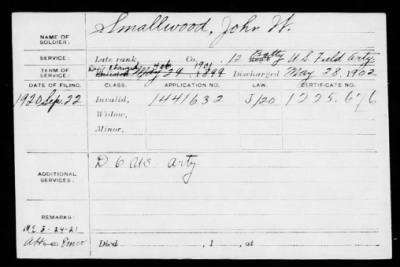 NAME OF SOLDIER: Smallwood, John W.
SERVICE: Late rank, Co. 12 Batty U.S. Field Arty.
TERM OF SERVICE: Enlisted 1899 1901, Discharged May 28, 1902.
DATE OF FILING. CLASS. APPLICATION NO. LAW. CERTIFICATE NO.
1920 Sep. 22 Invalid, 1441632 J/20 1225.676
Widow,
Minor,
ADDITIONAL SERVICES: D 6 U.S. Arty
REMARKS:
3-24-21
Died , 1 , at